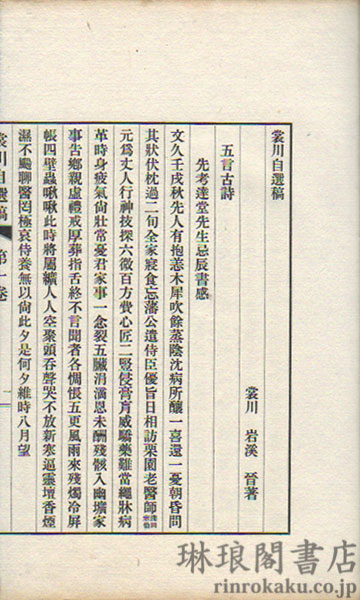 裳川自選稿
裳川　岩溪　晉著
五言古詩
先考達堂先生忌辰書感
文久壬戌秋先人有抱恙木犀吹餘蒸陰沈病所釀一喜還一憂朝昏問
其狀伏枕過二旬全家寢食忘藩公遣侍臣優旨日相訪栗園老醫師淺田宗伯
元爲丈人行神技探六微百方費心匠二豎侵膏肓威驕藥難當繩牀病
革時身疲氣尙壯常憂君家事一念裂五臟涓滴恩未酬殘骸入幽壙家
事吿鄕親虛禮戒厚葬指舌終不言聞者各惆悵五更風雨來殘燭冷屛
帳四壁蟲啾啾此時將屬纊人人空聚頭吞聲哭不放新寒逼靈壇香煙
濕不颺聊醫罔極哀侍養無以尙此夕是何夕維時八月望
裳川自選稿　第一卷　一
琳琅閣書店
rinrokaku.co.jp